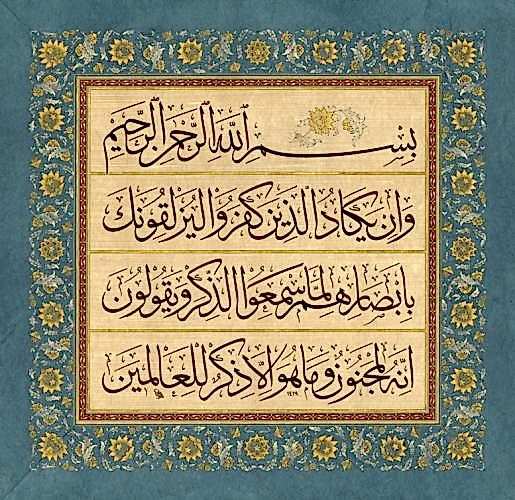 بِسْمِ اللّٰهِ الرَّحْمٰنِ الرَّحِيمِ
وَاِنْ يَكَادُ الَّذِينَ كَفَرُوا لَيُزْلِقُونَكَ
بِاَبْصَارِهِمْ لَمَّا سَمِعُوا الذِّكْرَ وَيَقُولُونَ
اِنَّهُ لَمَجْنُونٌ وَمَا هُوَ اِلَّا ذِكْرٌ لِلْعَالَمِينَ